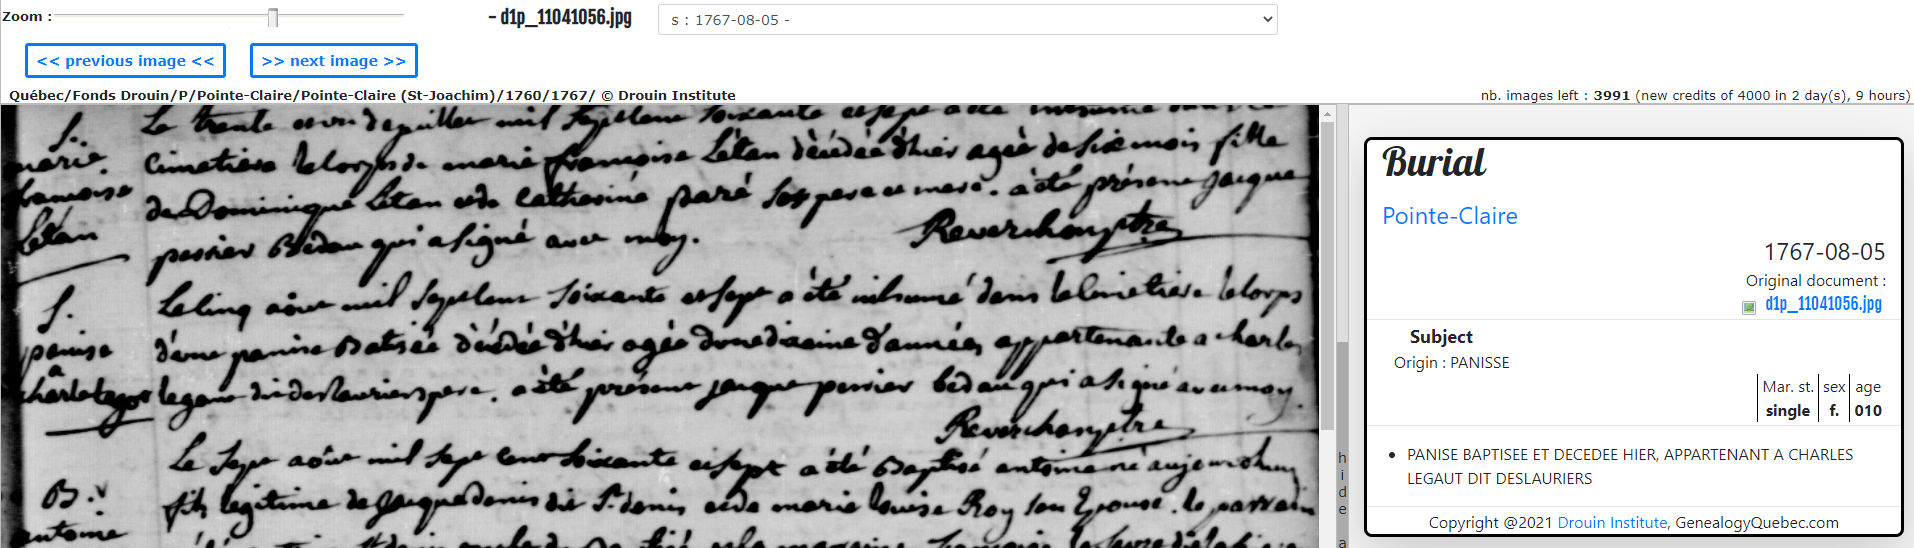 Zoom :
- d1p_11041056.jpg
s : 1767-08-05 -
<< previous image <<
>> next image >>
Québec/Fonds Drouin/P/Pointe-Claire/Pointe-Claire (St-Joachim)/1760/1767/ © Drouin Institute
nb. images left : 3991 (new credits of 4000 in 2 day(s), 9 hours)
S.
marie
francoise
Létan
Le trente et un de juillet mil sept cens soixante et sept a été inhumé dans le
Cimetiere le corps de marie françoise Létan décédée d'hier agée de six mois fille
de Dominique Létan et de Catherine paré ses pere et mere. a été présent jacque
perrier Bedau qui a signé avec moy.
Reverchon ptre
S.
panise
a
charle legos
Le cinq aôut mil sept cens soixante et sept a été inhumé dans le Cimetiere le corps
d'une panise Batisée décédée d'hier agée d'une dixaine d'années appartenante a charles
legaut dit deslauriers pere. a été présent jacque perrier bedau qui a signé avec moy.
Reverchon ptre
B.
antoine
Le sept aôut mil sept cens soixante et sept a été Baptisé antoine né aujourdhuy
fils légitime de jacque denis dit St. denis et de marie louise Roy son Epouse. le parrain
Burial
Pointe-Claire
1767-08-05
Original document :
d1p_11041056.jpg
Subject
Origin : PANISSE
Mar. st. sex age
single f. 010
• PANISE BAPTISEE ET DECEDEE HIER, APPARTENANT A CHARLES
LEGAUT DIT DESLAURIERS
Copyright @2021 Drouin Institute, GenealogyQuebec.com
h
i
d
e
a